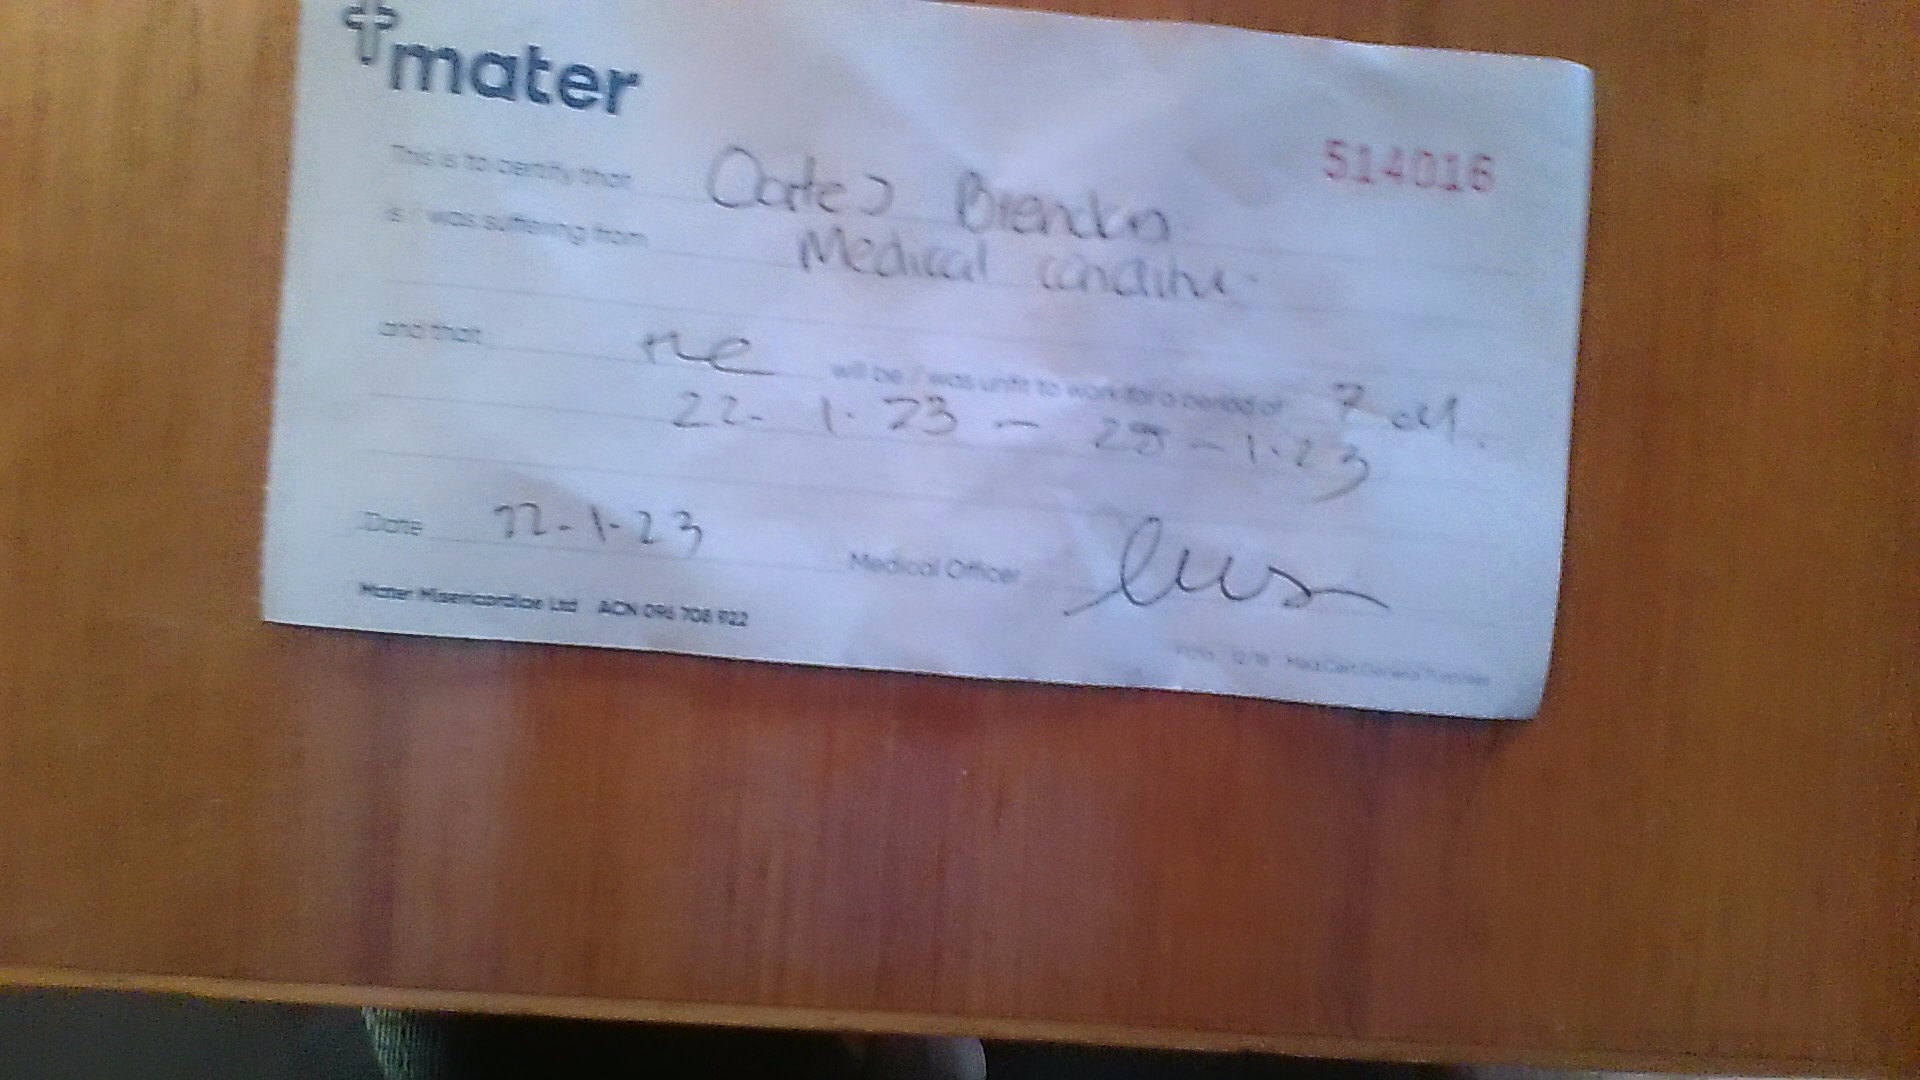 mater
514016
This is to certify that Oates Brendan
is / was suffering from Medical condition
and that He will be / was unfit to work for a period of 7
22- 1.23 - - 1.23
Date 22-1-23 Medical Officer
Mater Misericordiae Ltd ACN 096 708 922
12/18 Med Cert General Purposes